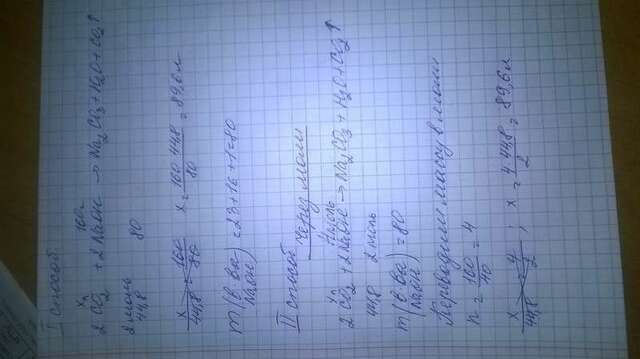 I способ
x л 160г
2CO₂ + 2NaOH → Na₂CO₃ + H₂O + CO₂↑
2 моль 80
44,8
x/44,8 = 160/80 x = 160·44,8/80 = 89,6 л
m (в-ва NaOH) = 23+16+1=80
II способ
через моли
x л 4 моль
2CO₂ + 2NaOH → Na₂CO₃ + H₂O + CO₂↑
44,8 2 моль
m (в-ва NaOH) = 80
Переводим массу в моли
n = 160/40 = 4
x/44,8 = 4/2 ; x = 4·44,8/2 = 89,6 л